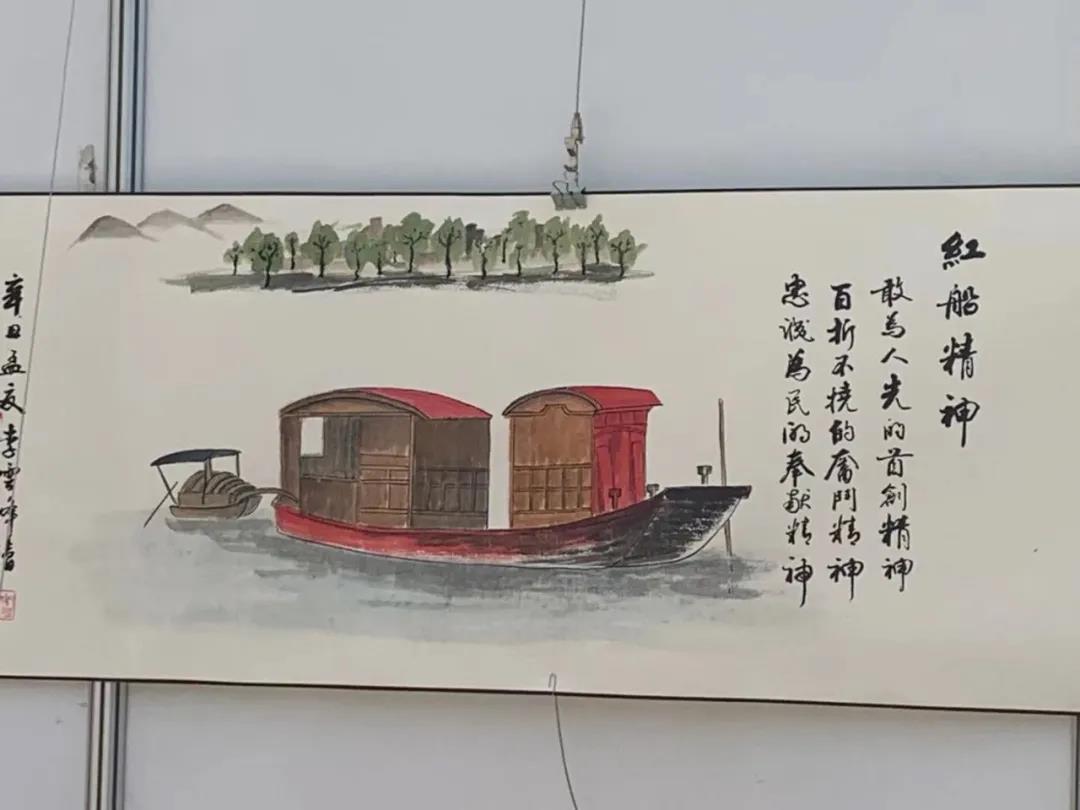 紅船精神
敢為人先的首創精神
百折不撓的奮鬥精神
忠誠為民的奉獻精神
辛丑孟夏李雲峰書